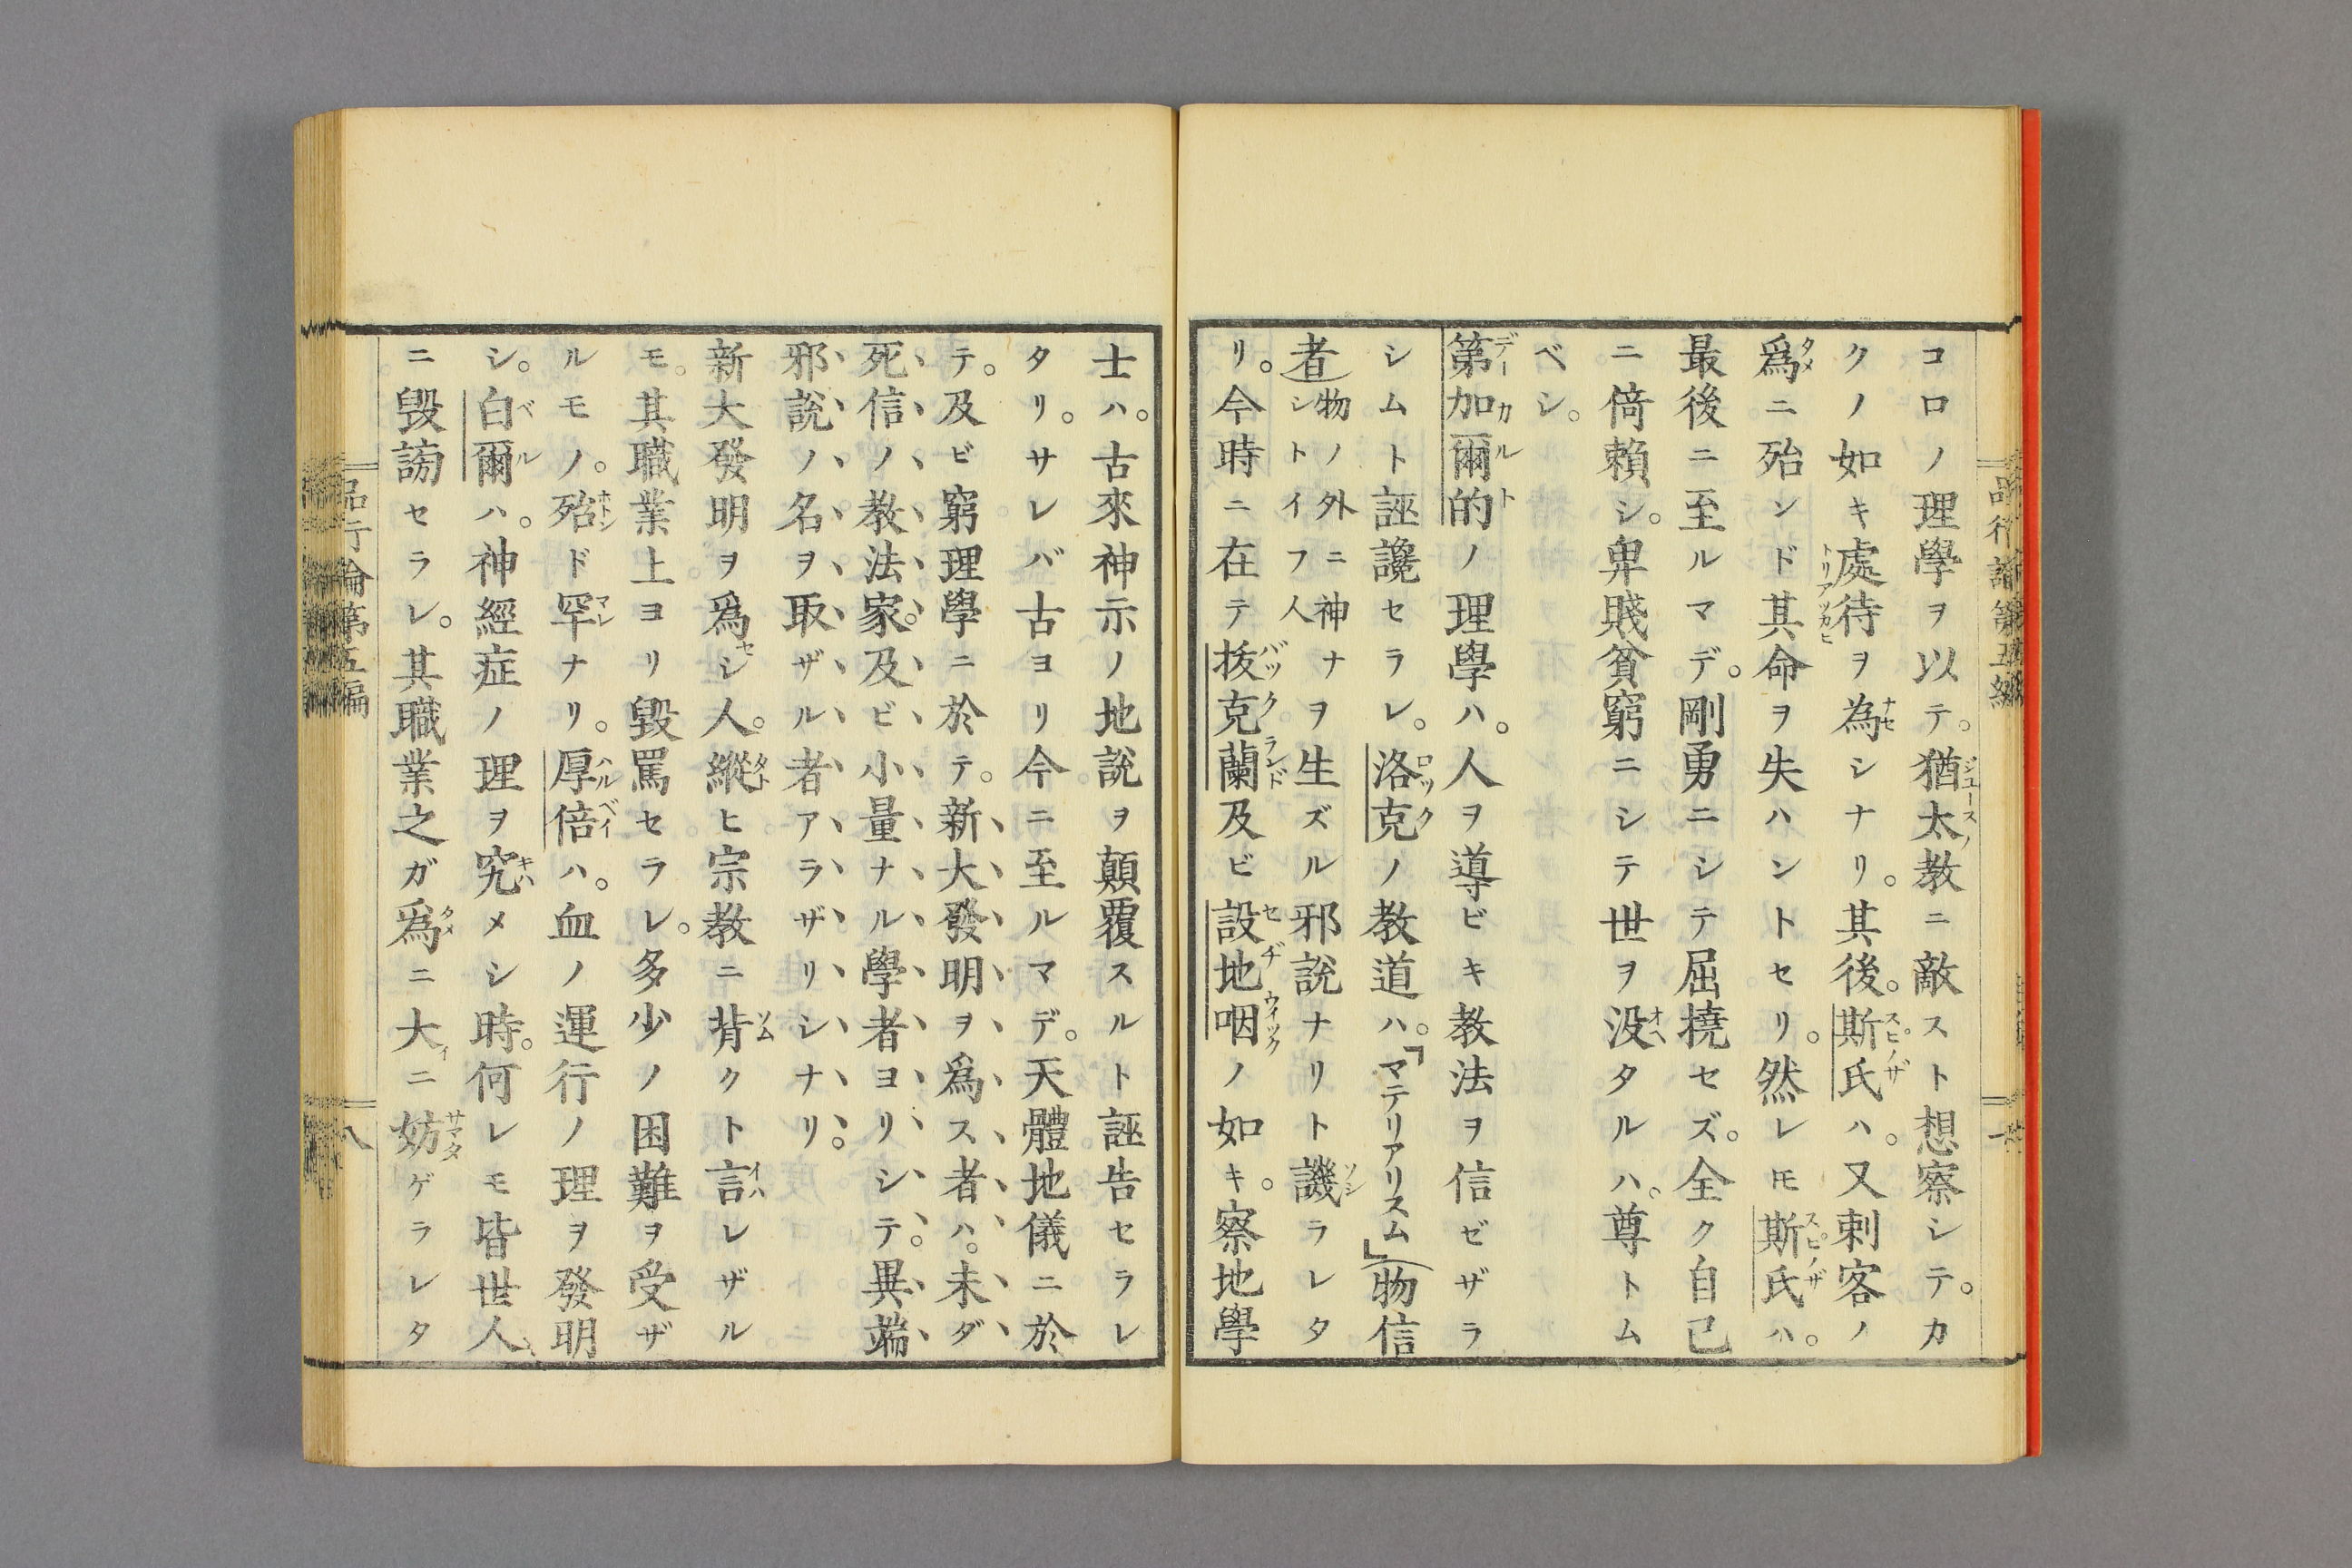 コロノ理學ヲ以テ。猶太教ニ敵スト想察シテ。カ
クノ如キ處待ヲ為シナリ。其後。斯氏ハ。又刺客ノ
爲ニ殆ンド其命ヲ失ハントセリ。然レ𪜈斯氏ハ。
最後ニ至ルマデ。剛勇ニシテ屈撓セズ。全ク自己
ニ倚賴シ。卑賤貧窮ニシテ世ヲ沒タルハ。尊トム
ベシ。
第加爾的ノ理學ハ。人ヲ導ビキ教法ヲ信ゼザラ
シムト誣讒セラレ。洛克ノ教道ハ。「マテリアリスム」(物信
者物ノ外ニ神ナシトイフ人)ヲ生ズル邪説ナリト譏ラレタ
リ。今時ニ在テ拔克蘭及ビ設地咽ノ如キ。察地學
士ハ。古來神示ノ地説ヲ顛覆スルト誣告セラレ
タリ。サレバ古ヨリ今ニ至ルマデ。天體地儀ニ於
テ。及ビ窮理學ニ於テ。新大發明ヲ爲ス者ハ。未ダ
死信ノ教法家。及ビ小量ナル學者ヨリシテ。異端
邪説ノ名ヲ取ザル者アラザリシナリ。
新大發明ヲ爲シ人。縱ヒ宗教ニ背クト言レザル
モ。其職業上ヨリ毀罵セラレ。多少ノ困難ヲ受ザ
ルモノ。殆ド罕ナリ。厚倍ハ。血ノ運行ノ理ヲ發明
シ。白爾ハ。神經症ノ理ヲ究メシ時。何レモ皆世人
ニ毀謗セラレ。其職業之ガ爲ニ大ニ妨ゲラレタ
品行論第五編
八